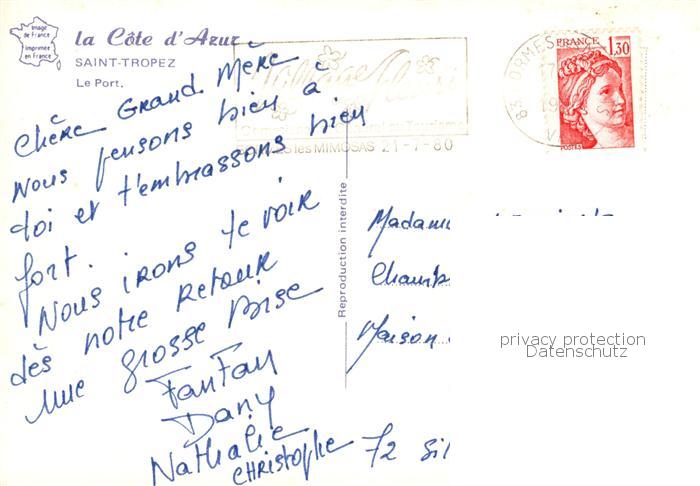 Image
de France
Imprimée
en France
la Côte d'Azur
SAINT-TROPEZ
Le Port.
Chère Grand Mère
Nous pensons bien à
toi et t'embrassons bien
fort.
Nous irons te voir
dès notre retour
une grosse bise
FanFan
Dany
Nathalie
CHRISTOPHE
Reproduction interdite
Village
les MIMOSAS 21-7-80
83 ORMES
FRANCE
1,30
POSTES
Madame
Chamb
Maison
72 Sil
privacy protection
Datenschutz